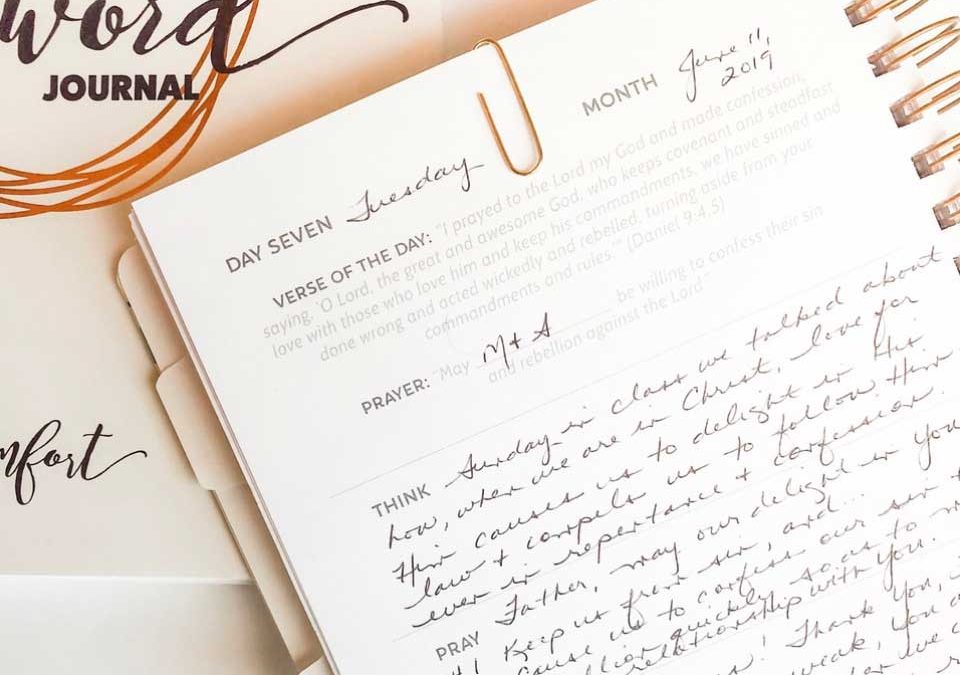 word
JOURNAL
MONTH June 11,
2019
DAY SEVEN Tuesday
VERSE OF THE DAY: "I prayed to the Lord my God and made confession,
saying, 'O Lord, the great and awesome God, who keeps covenant and steadfast
love with those who love him and keep his commandments, we have sinned and
done wrong and acted wickedly and rebelled, turning aside from your
commandments and rules.'" (Daniel 9:4,5)
PRAYER: "May M + A be willing to confess their sin
and rebellion against the Lord"
mfort
THINK Sunday in class we talked about
how, when we are in Christ, love for
Him causes us to delight in His
law + compels us to follow Him
ever in repentance + confession.
PRAY Father, may our delight in You
Keep us from sin, and...
cause us to confess our sin
quickly so as to
relationship with You.
Thank You,
weak, You
we